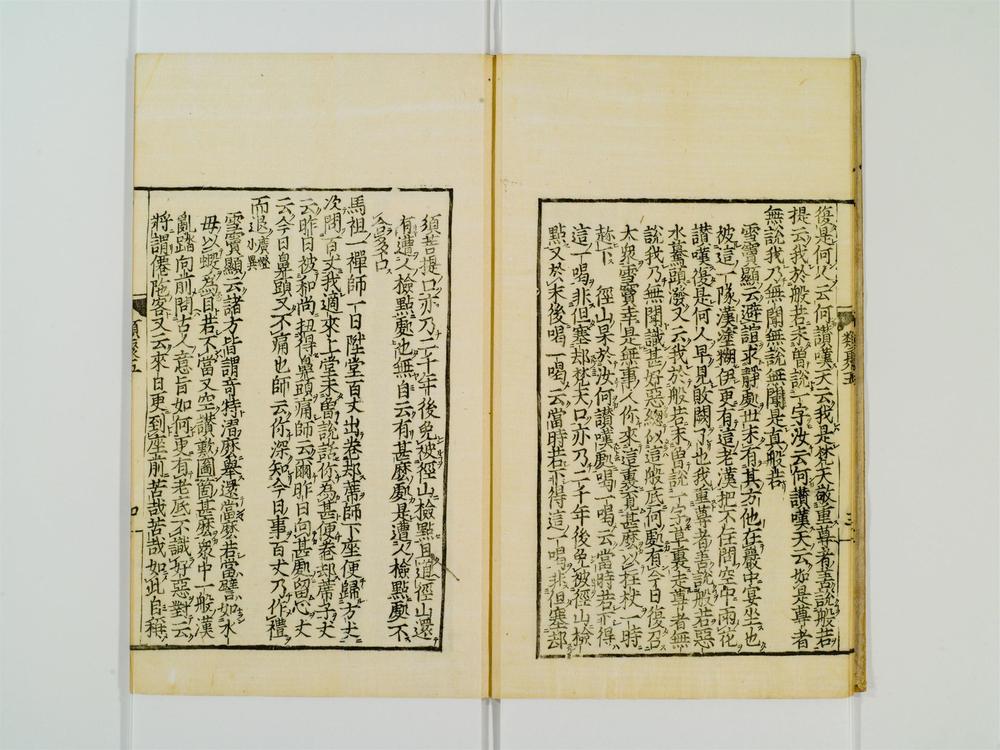 復是何人云何讃嘆天云我是梵天敬重尊者善說般若
提云我於般若未曽說一字汝云何讃嘆天云如是尊者
無說我乃無聞無說無聞是真般若
雪竇顯云避諠求靜處世未有其方他在巖中宴坐也
被這一隊漢塗糊伊更有這老漢把不住問空中雨花
讃嘆復是何人早見敗闕了也我重尊者善說般若惡
水驀頭潑又云我於般若未曽說一字草裏走尊者無
說我乃無聞識甚好惡總似這般底何處有今日復召
大衆雪竇幸是無事人你來這裏覓甚麽以拄杖一時
趂下 徑山杲於汝何讃嘆處喝一喝云當時若下得
這一喝非但塞却梵天口亦乃二千年後免被徑山檢
點又於末後喝一喝云當時若下得這一喝非但塞却
類聚五
三
須菩提口亦乃二千年後免被徑山檢點且道徑山還
有遭人檢點處也無自云有甚麽處是遭人檢點處不
合多口
馬祖一禪師一日陞堂百丈出卷却蓆師下座便歸方丈
次問百丈我適來上堂未曽說話你為甚便卷却蓆子丈
云昨日被和尚扭得鼻頭痛師云爾昨日向甚處留心丈
云今日鼻頭又不痛也師云你深知今日事百丈乃作禮
而退廣燈小異
雪竇顯云諸方皆謂奇特潛麽舉還當麽若當譬如水
母以蝦為目若不當又空讃歎圖箇甚麽衆中一般漢
亂踏向前問古人意旨如何更有老底不識好惡對云
將謂僊陁客又云來日更到座前苦哉苦哉如此自稱
類聚五
四